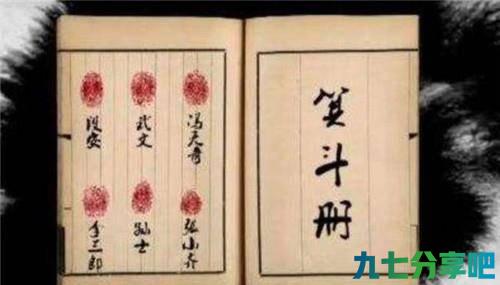 箕斗册
冯天奇
武文
段安
张小
孙士
李三郎
九七分享吧